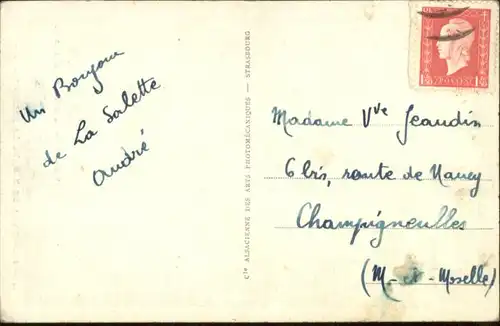 Un Bonjour
de La Salette
André
Cie ALSACIENNE DES ARTS PHOTOMÉCANIQUES — STRASBOURG
Madame Vve Jeandin
6 bis, route de Nancy
Champigneulles
(M-et-Moselle)